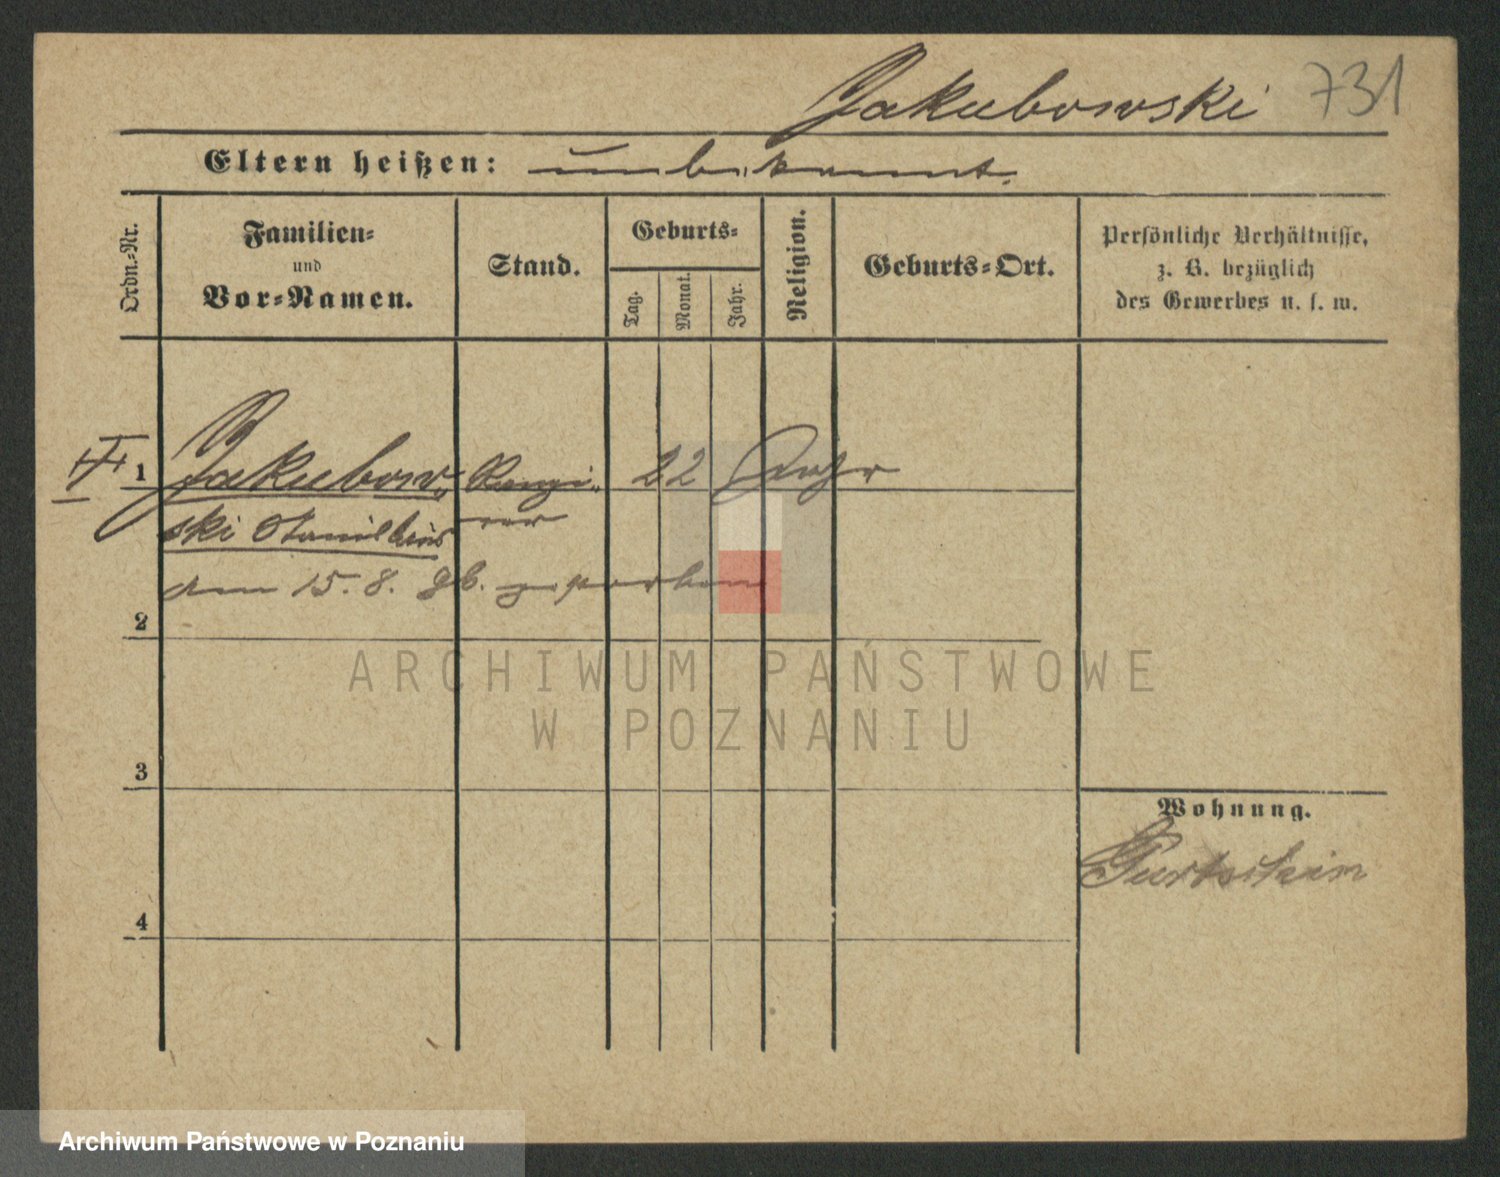 Jakubowski 731
Eltern heißen: unbekannt.
Ordn.-Nr.
Familien-
und
Vor-Namen.
Stand.
Geburts-
Tag.
Monat.
Jahr.
Religion.
Geburts-Ort.
Persönliche Verhältnisse,
z. B. bezüglich
des Gewerbes u. s. w.
1 Jakubow- Rangi- 22 Jahr
ski Stanislaus rer
den 15. 8. gestorben
2
ARCHIWUM PAŃSTWOWE
W POZNANIU
3
Wohnung.
4
Archiwum Państwowe w Poznaniu